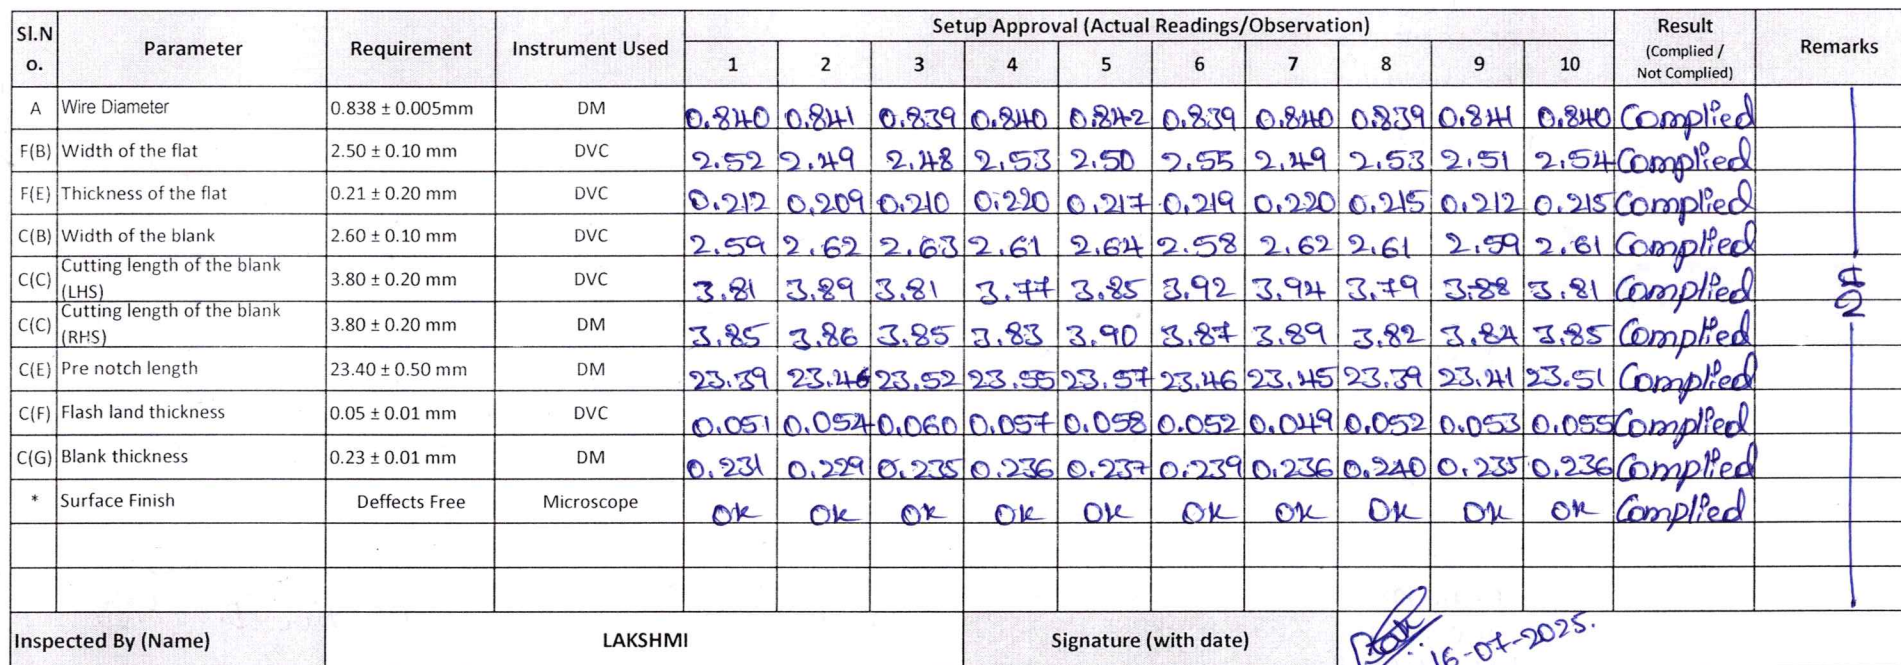 Sl.N o. Parameter Requirement Instrument Used Setup Approval (Actual Readings/Observation) Result (Complied / Not Complied) Remarks
1 2 3 4 5 6 7 8 9 10
A Wire Diameter 0.838 ± 0.005mm DM 0.840 0.841 0.839 0.840 0.842 0.839 0.840 0.839 0.841 0.840 Complied
F(B) Width of the flat 2.50 ± 0.10 mm DVC 2.52 2.49 2.48 2.53 2.50 2.55 2.49 2.53 2.51 2.54 Complied
F(E) Thickness of the flat 0.21 ± 0.20 mm DVC 0.212 0.209 0.210 0.220 0.217 0.219 0.220 0.215 0.212 0.215 Complied
C(B) Width of the blank 2.60 ± 0.10 mm DVC 2.59 2.62 2.63 2.61 2.64 2.58 2.62 2.61 2.59 2.61 Complied
C(C) Cutting length of the blank (LHS) 3.80 ± 0.20 mm DVC 3.81 3.89 3.81 3.77 3.85 3.92 3.94 3.79 3.88 3.81 Complied
C(C) Cutting length of the blank (RHS) 3.80 ± 0.20 mm DM 3.85 3.86 3.85 3.83 3.90 3.87 3.89 3.82 3.84 3.85 Complied
C(E) Pre notch length 23.40 ± 0.50 mm DM 23.39 23.46 23.52 23.55 23.57 23.46 23.45 23.39 23.41 23.51 Complied
C(F) Flash land thickness 0.05 ± 0.01 mm DVC 0.051 0.054 0.060 0.057 0.058 0.052 0.049 0.052 0.053 0.055 Complied
C(G) Blank thickness 0.23 ± 0.01 mm DM 0.231 0.229 0.235 0.236 0.237 0.239 0.236 0.240 0.235 0.236 Complied
* Surface Finish Deffects Free Microscope OK OK OK OK OK OK OK OK OK OK Complied
Inspected By (Name) LAKSHMI Signature (with date) 16-07-2025.